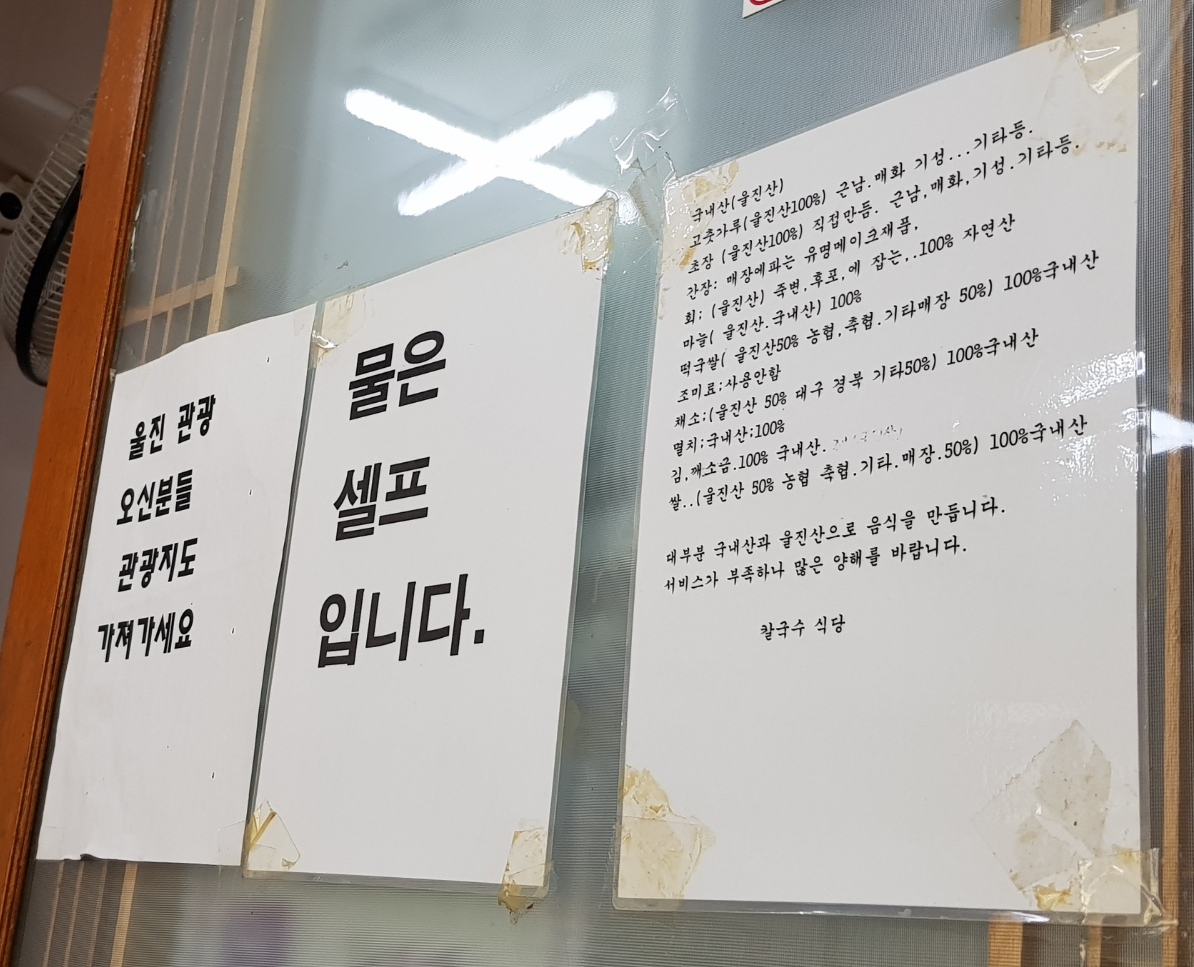 울진 관광
오신분들
관광지도
가져가세요
물은
셀프
입니다.
국내산(울진산)
고춧가루(울진산100%) 근남.매화 기성...기타등.
초장 (울진산100%) 직접만듬. 근남,매화,기성.기타등.
간장: 매장에파는 유명메이크재품,
회; (울진산) 죽변,후포,에 잡는,.100% 자연산
마늘( 울진산.국내산) 100%
떡국쌀( 울진산50% 농협,축협.기타매장 50%) 100%국내산
조미료;사용안함
채소;(울진산 50% 대구 경북 기타50%) 100%국내산
멸치;국내산;100%
김,깨소금.100% 국내산.
쌀..(울진산 50% 농협 축협.기타.매장.50%) 100%국내산
대부분 국내산과 울진산으로 음식을 만듭니다.
서비스가 부족하나 많은 양해를 바랍니다.
칼국수 식당